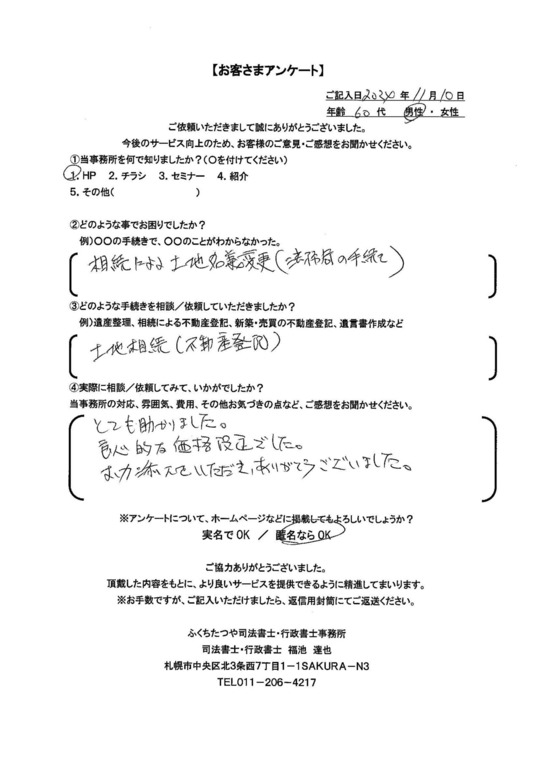 【お客さまアンケート】
ご記入日2024年 11月 10日
年齢 60 代 男性 ・ 女性
ご依頼いただきまして誠にありがとうございました。
今後のサービス向上のため、お客様のご意見・ご感想をお聞かせください。
①当事務所を何で知りましたか?(○を付けてください)
1. HP 2. チラシ 3. セミナー 4. 紹介
5. その他( )
②どのような事でお困りでしたか?
例)○○の手続きで、○○のことがわからなかった。
相続による土地名義変更(法務局の手続き)
③どのような手続きを相談/依頼していただきましたか?
例)遺産整理、相続による不動産登記、新築・売買の不動産登記、遺言書作成など
土地相続(不動産登記)
④実際に相談/依頼してみて、いかがでしたか?
当事務所の対応、雰囲気、費用、その他お気づきの点など、ご感想をお聞かせください。
とても助かりました。
良心的な価格設定でした。
お力添えをいただき、ありがとうございました。
※アンケートについて、ホームページなどに掲載してもよろしいでしょうか?
実名でOK / 匿名ならOK
ご協力ありがとうございました。
頂戴した内容をもとに、より良いサービスを提供できるように精進してまいります。
※お手数ですが、ご記入いただけましたら、返信用封筒にてご返送ください。
ふくちたつや司法書士・行政書士事務所
司法書士・行政書士 福池 達也
札幌市中央区北3条西7丁目1-1SAKURA-N3
TEL011-206-4217